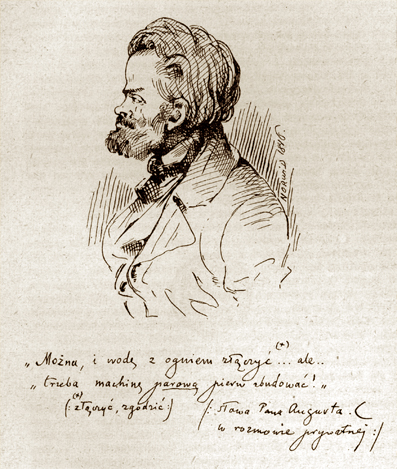 Norwid 1856.
(+)
„Można, i wodę z ogniem złączyć... ale..
„trzeba machinę parową pierw zbudować!"
(+)
(: złączyć, zgodzić :)
/: słowa Pana Augusta. C
w rozmowie prywatnej :/